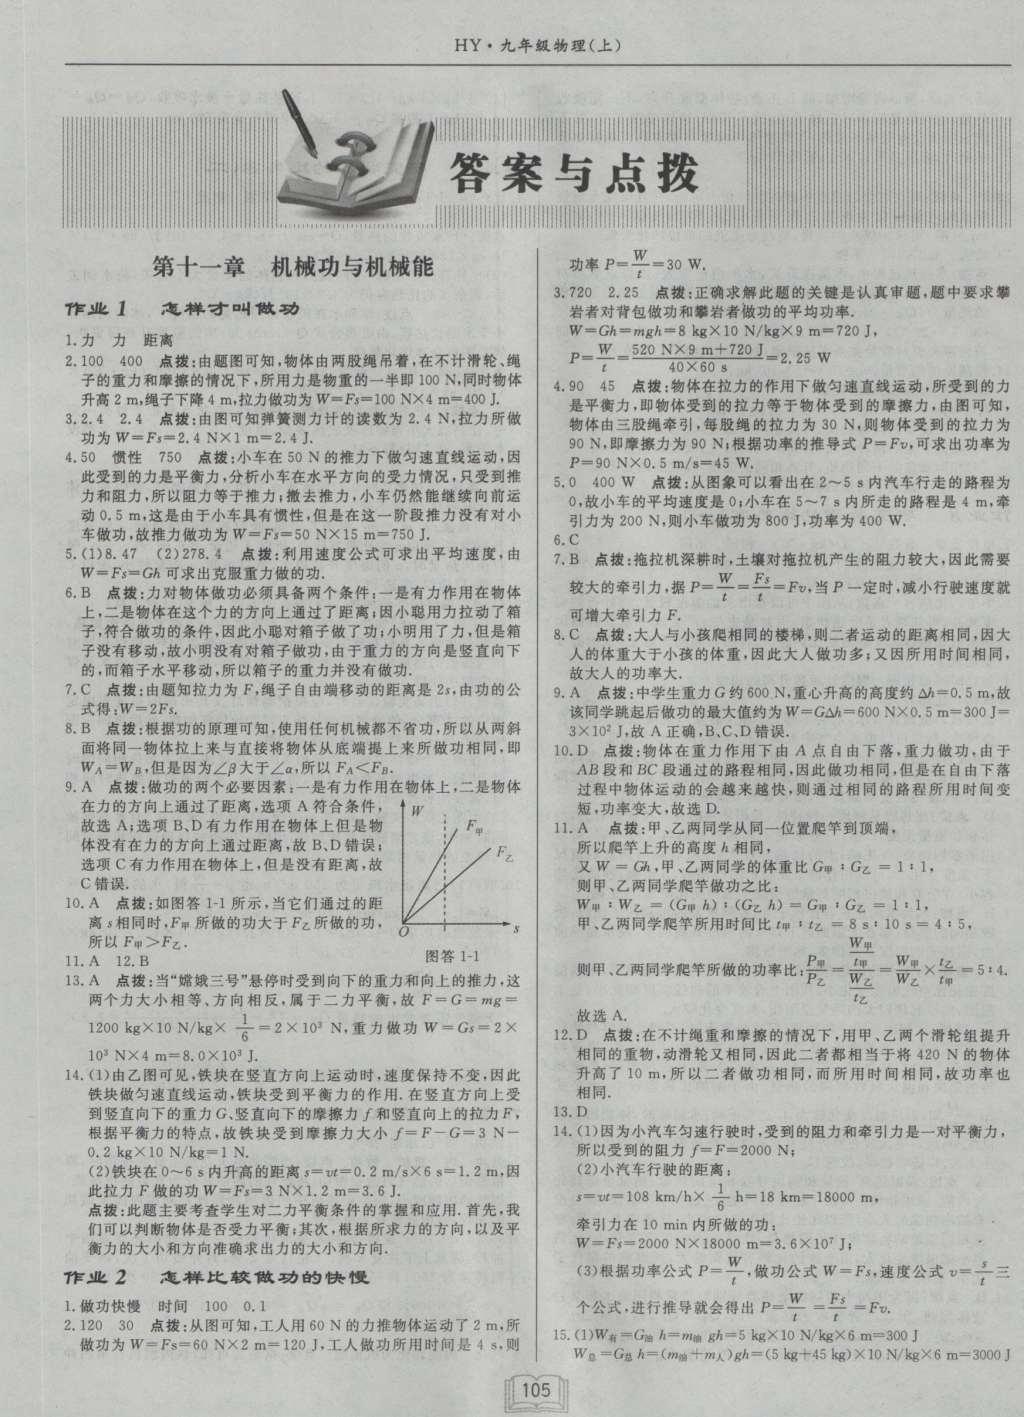 HY·九年级物理(上)
答案与点拨
第十一章 机械功与机械能
作业1 怎样才叫做功
1.力 力 距离
2.100 400 点拨:由题图可知,物体由两股绳吊着,在不计滑轮、绳
子的重力和摩擦的情况下,所用力是物重的一半即100 N,同时物体
升高2 m,绳子下降4 m,拉力做功为W=Fs=100 N×4 m=400 J.
3.2.4 2.4 点拨:由图可知弹簧测力计的读数为2.4 N,拉力所做
功为W=Fs=2.4 N×1 m=2.4 J.
4.50 惯性 750 点拨:小车在50 N的推力下做匀速直线运动,因
此受到的力是平衡力,分析小车在水平方向的受力情况,只受到推
力和阻力,所以阻力等于推力;撤去推力,小车仍然能继续向前运
动0.5 m,这是由于小车具有惯性,但是在这一阶段推力没有对小
车做功,故推力做功为W=Fs=50 N×15 m=750 J.
5.(1)8.47 (2)278.4 点拨:利用速度公式可求出平均速度,由
W=Fs=Gh可求出克服重力做的功.
6.B 点拨:力对物体做功必须具备两个条件:一是有力作用在物体
上,二是物体在这个力的方向上通过了距离;因小聪用力拉动了箱
子,符合做功的条件,因此小聪对箱子做了功;小明用了力,但是箱
子没有移动,故小明没有对箱子做功,由于重力的方向是竖直向下
的,而箱子水平移动,所以箱子的重力并没有做功.
7.C 点拨:由题知拉力为F,绳子自由端移动的距离是2s,由功的公
式得:W=2Fs.
8.B 点拨:根据功的原理可知,使用任何机械都不省功,所以从两斜
面将同一物体拉上来与直接将物体从底端提上来所做功相同,即
W_A=W_B,但是因为∠β大于∠α,所以F_A<F_B.
9.A 点拨:做功的两个必要因素:一是有力作用在物体上,二是物体
在力的方向上通过了距离,选项A符合条件,
故选A;选项B、D有力作用在物体上但是物
体没有在力的方向上通过距离,故B、D错误;
选项C有力作用在物体上,但是没有距离,故
C错误.
10.A 点拨:如图答1-1所示,当它们通过的距
离s相同时,F甲所做的功大于F乙所做的功,
所以F甲>F乙.
W
F甲
F乙
O
s
图答1-1
11.A 12.B
13.A 点拨:当“嫦娥三号”悬停时受到向下的重力和向上的推力,这
两个力大小相等、方向相反,属于二力平衡,故F=G=mg=
1200 kg×10 N/kg×1/6=2×10³ N,重力做功W=Gs=2×
10³ N×4 m=8.0×10³ J.
14.(1)由乙图可见,铁块在竖直方向上运动时,速度保持不变,因此
铁块做匀速直线运动,铁块受到平衡力的作用.在竖直方向上受
到竖直向下的重力G、竖直向下的摩擦力f和竖直向上的拉力F,
根据平衡力的特点,故铁块受到摩擦力大小f=F-G=3 N-
0.2 kg×10 N/kg=1 N.
(2)铁块在0~6 s内升高的距离s=vt=0.2 m/s×6 s=1.2 m,因
此拉力F做的功W=Fs=3 N×1.2 m=3.6 J.
点拨:此题主要考查学生对二力平衡条件的掌握和应用.首先,我
们可以判断物体是否受力平衡;其次,根据所求力的方向,以及平
衡力的大小和方向准确求出力的大小和方向.
作业2 怎样比较做功的快慢
1.做功快慢 时间 100 0.1
2.120 30 点拨:从图可知,工人用60 N的力推物体运动了2 m,所
做功为W=Fs=60 N×2 m=120 J,工人做功所用时间是4 s,则
功率P=W/t=30 W.
3.720 2.25 点拨:正确求解此题的关键是认真审题,题中要求攀
岩者对背包做功和攀岩者做功的平均功率.
W=Gh=mgh=8 kg×10 N/kg×9 m=720 J,
P=W/t=(520 N×9 m+720 J)/(40×60 s)=2.25 W
4.90 45 点拨:物体在拉力的作用下做匀速直线运动,所受到的力
是平衡力,即物体受到的拉力等于物体受到的摩擦力,由图可知,
物体由三股绳牵引,每股绳的拉力为30 N,则物体受到的拉力为
90 N,即摩擦力为90 N;根据功率的推导式P=Fv,可求出功率为
P=90 N×0.5 m/s=45 W.
5.0 400 W 点拨:从图象可以看出在2~5 s内汽车行走的路程为
0,故小车的平均速度是0;小车在5~7 s内所走的路程是4 m,牵
引力为200 N,则小车做功为800 J,功率为400 W.
6.C
7.B 点拨:拖拉机深耕时,土壤对拖拉机产生的阻力较大,因此需要
较大的牵引力,据P=W/t=Fs/t=Fv,当P一定时,减小行驶速度就
可增大牵引力F.
8.C 点拨:大人与小孩爬相同的楼梯,则二者运动的距离相同,因大
人的体重大于小孩的体重,因此大人做功多;又因所用时间相同,
故大人的功率大.
9.A 点拨:中学生重力G约600 N,重心升高的高度约Δh=0.5 m,故
该同学跳起后做功的最大值约为W=GΔh=600 N×0.5 m=300 J=
3×10² J,故A正确,B、C、D错误.
10.D 点拨:物体在重力作用下由A点自由下落,重力做功,由于
AB段和BC段通过的路程相同,因此做功相同,但是在自由下落
过程中物体运动的会越来越快,则通过相同的路程所用时间变
短,功率变大,故选D.
11.A 点拨:甲、乙两同学从同一位置爬竿到顶端,
所以爬竿上升的高度h相同,
又W=Gh,甲、乙两同学的体重比G甲∶G乙=1∶1,
则甲、乙两同学爬竿做功之比:
W甲∶W乙=(G甲h)∶(G乙h)=G甲∶G乙=1∶1,
甲、乙两同学爬竿所用时间比t甲∶t乙=8 s∶10 s=4∶5,
则甲、乙两同学爬竿所做的功率比:P甲/P乙=(W甲/t甲)/(W乙/t乙)=W甲/W乙×t乙/t甲=5∶4.
故选A.
12.D 点拨:在不计绳重和摩擦的情况下,用甲、乙两个滑轮组提升
相同的重物,动滑轮又相同,因此二者都相当于将420 N的物体
升高了10 m,所以二者做功相同,而所用时间相同,故功率也
相同.
13.D
14.(1)因为小汽车匀速行驶时,受到的阻力和牵引力是一对平衡力,
所以受到的阻力f=F=2000 N;
(2)小汽车行驶的距离:
s=vt=108 km/h×1/6 h=18 km=18000 m,
牵引力在10 min内所做的功:
W=Fs=2000 N×18000 m=3.6×10⁷ J;
(3)根据功率公式P=W/t,做功公式W=Fs,速度公式v=s/t三
个公式,进行推导就会得出P=W/t=Fs/t=Fv.
15.(1)W有=G油h=m油gh=5 kg×10 N/kg×6 m=300 J
W总=G总h=(m油+m人)gh=(5 kg+45 kg)×10 N/kg×6 m=3000 J
105